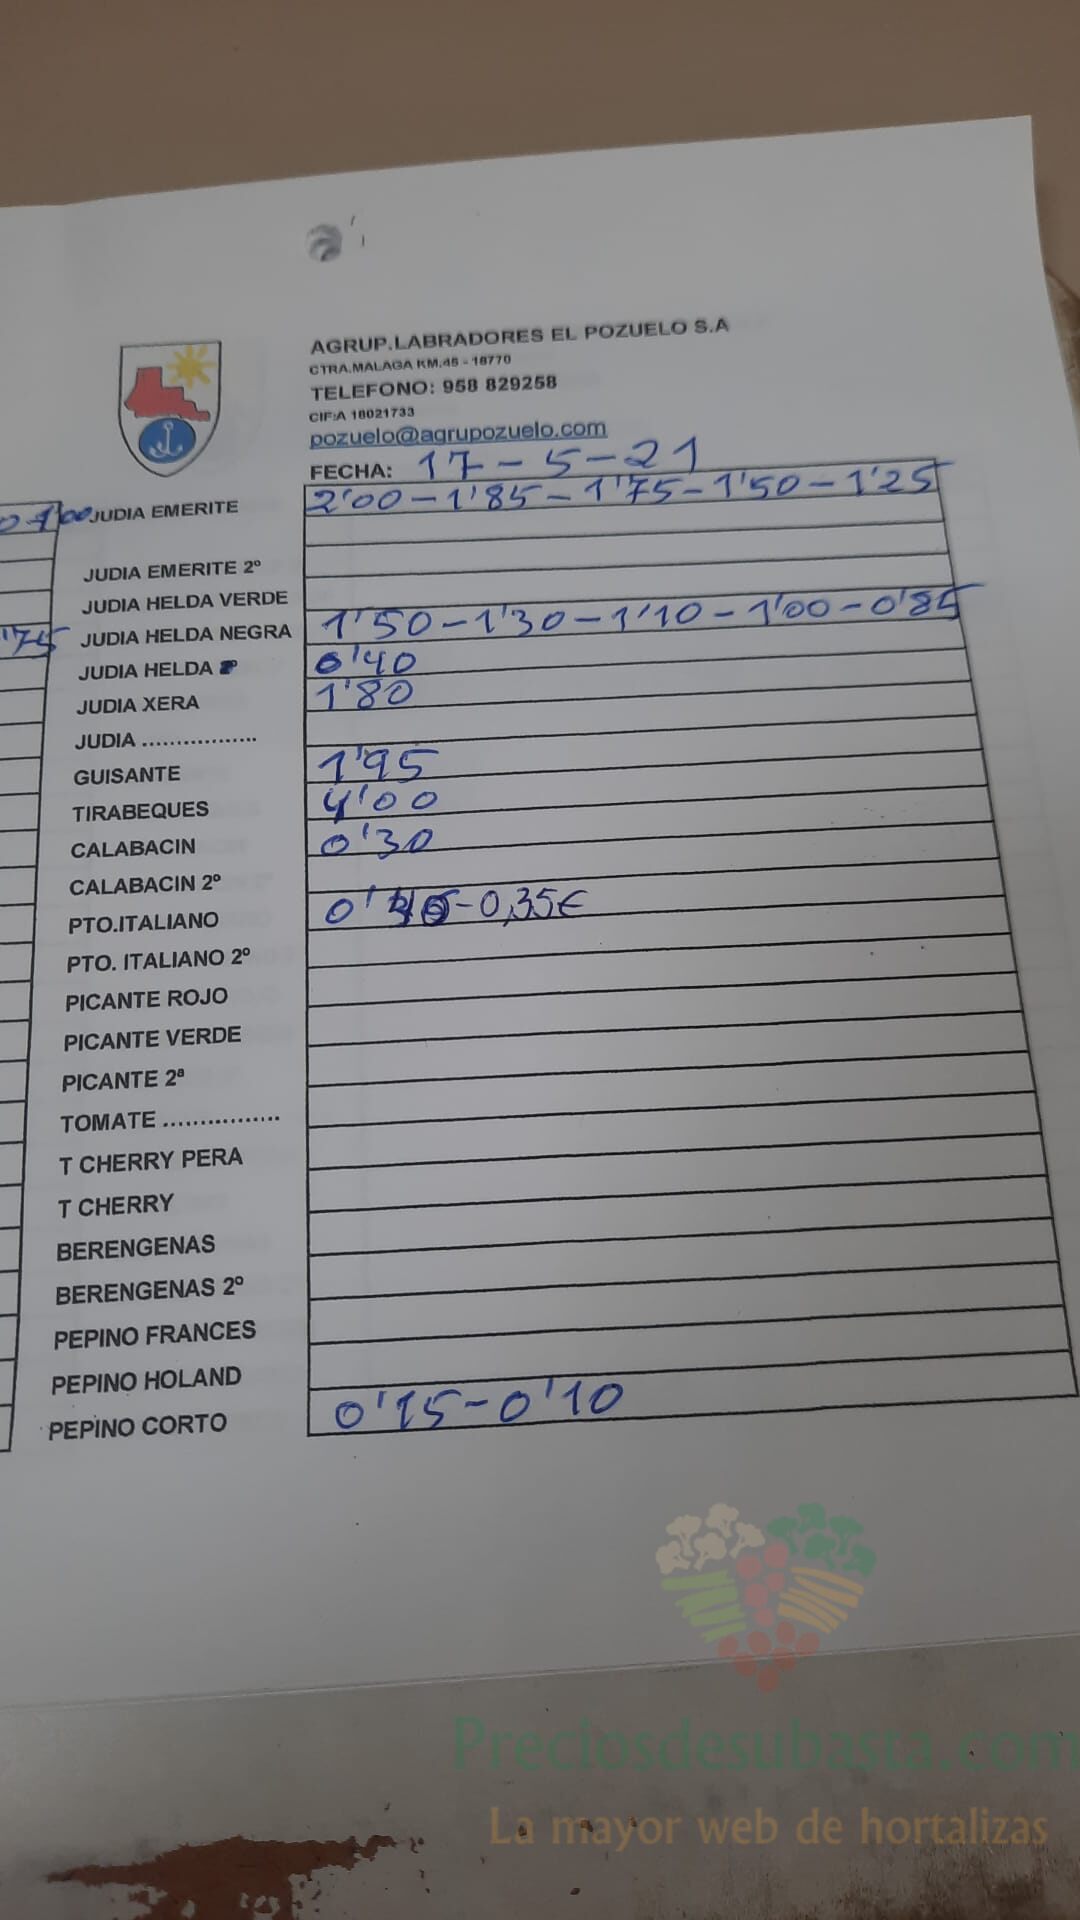 AGRUP.LABRADORES EL POZUELO S.A
CTRA.MALAGA KM.45 - 18770
TELEFONO: 958 829258
CIF:A 18021733
pozuelo@agrupozuelo.com
FECHA: 17-5-21
JUDIA EMERITE 2'00-1'85-1'75-1'50-1'25
JUDIA EMERITE 2º
JUDIA HELDA VERDE
'75 JUDIA HELDA NEGRA 1'50-1'30-1'10-1'00-0'85
JUDIA HELDA 0'40
JUDIA XERA 1'80
JUDIA .................
GUISANTE 1'95
TIRABEQUES 4'00
CALABACIN 0'30
CALABACIN 2º
PTO.ITALIANO -0,35€
PTO. ITALIANO 2º
PICANTE ROJO
PICANTE VERDE
PICANTE 2ª
TOMATE .................
T CHERRY PERA
T CHERRY
BERENGENAS
BERENGENAS 2º
PEPINO FRANCES
PEPINO HOLAND
PEPINO CORTO 0'15-0'10
Preciosdesubasta.com
La mayor web de hortalizas